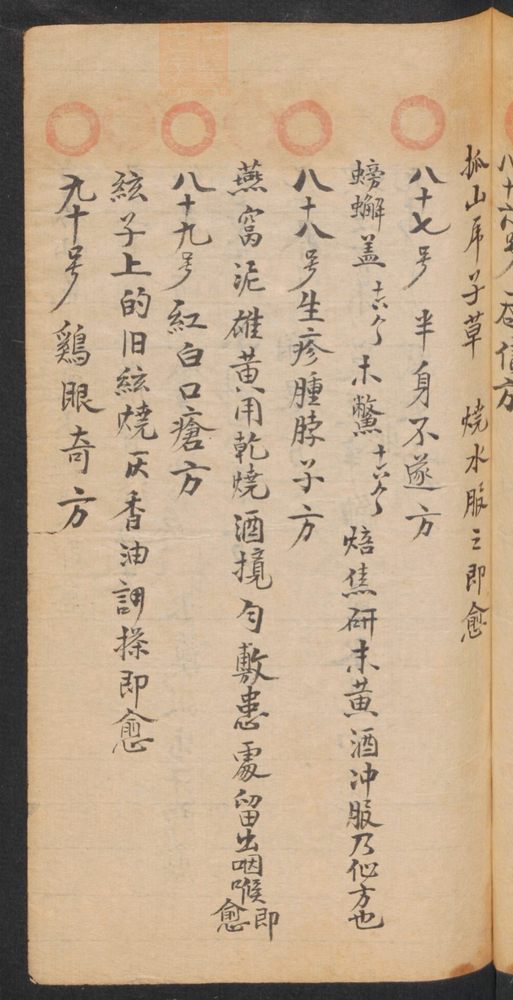 孤山屌子草　燒水服之即愈
八十七号　半身不遂方
螃蠏盖十六个木鱉十六个焙焦研末黄酒冲服乃仙方也
八十八号生疹腫脖子方
燕窩泥雄黄用乾燒酒攪匀敷患處留出咽喉即愈
八十九号紅白口瘡方
絃子上的旧絃燒灰香油調搽即愈
九十号鷄眼奇方